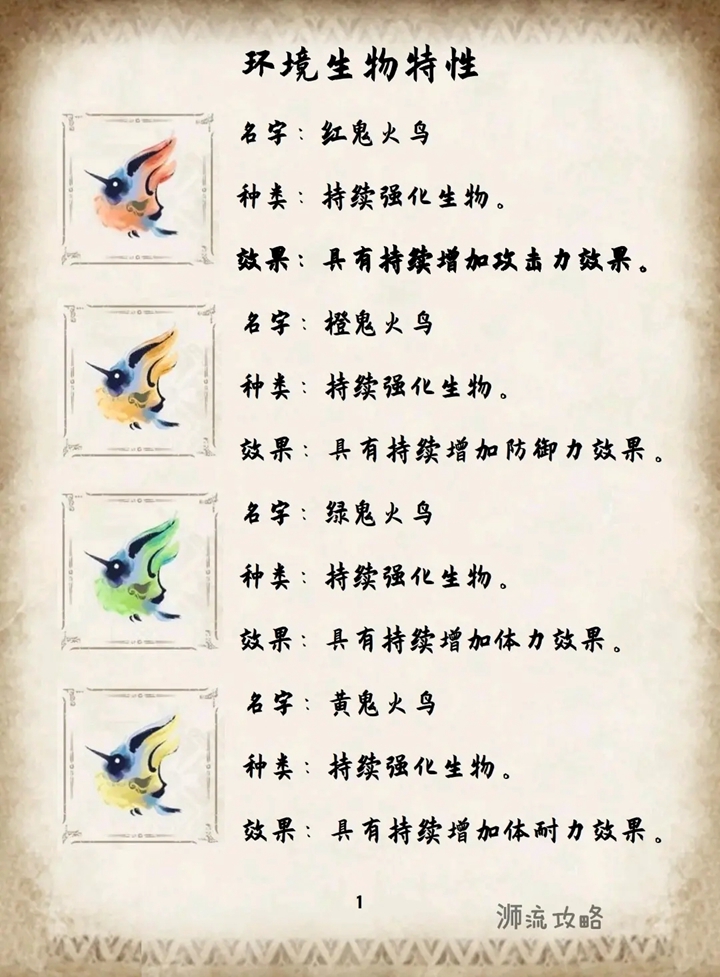 环境生物特性
名字：红鬼火鸟
种类：持续强化生物。
效果：具有持续增加攻击力效果。
名字：橙鬼火鸟
种类：持续强化生物。
效果：具有持续增加防御力效果。
名字：绿鬼火鸟
种类：持续强化生物。
效果：具有持续增加体力效果。
名字：黄鬼火鸟
种类：持续强化生物。
效果：具有持续增加体耐力效果。
1
浉流攻略